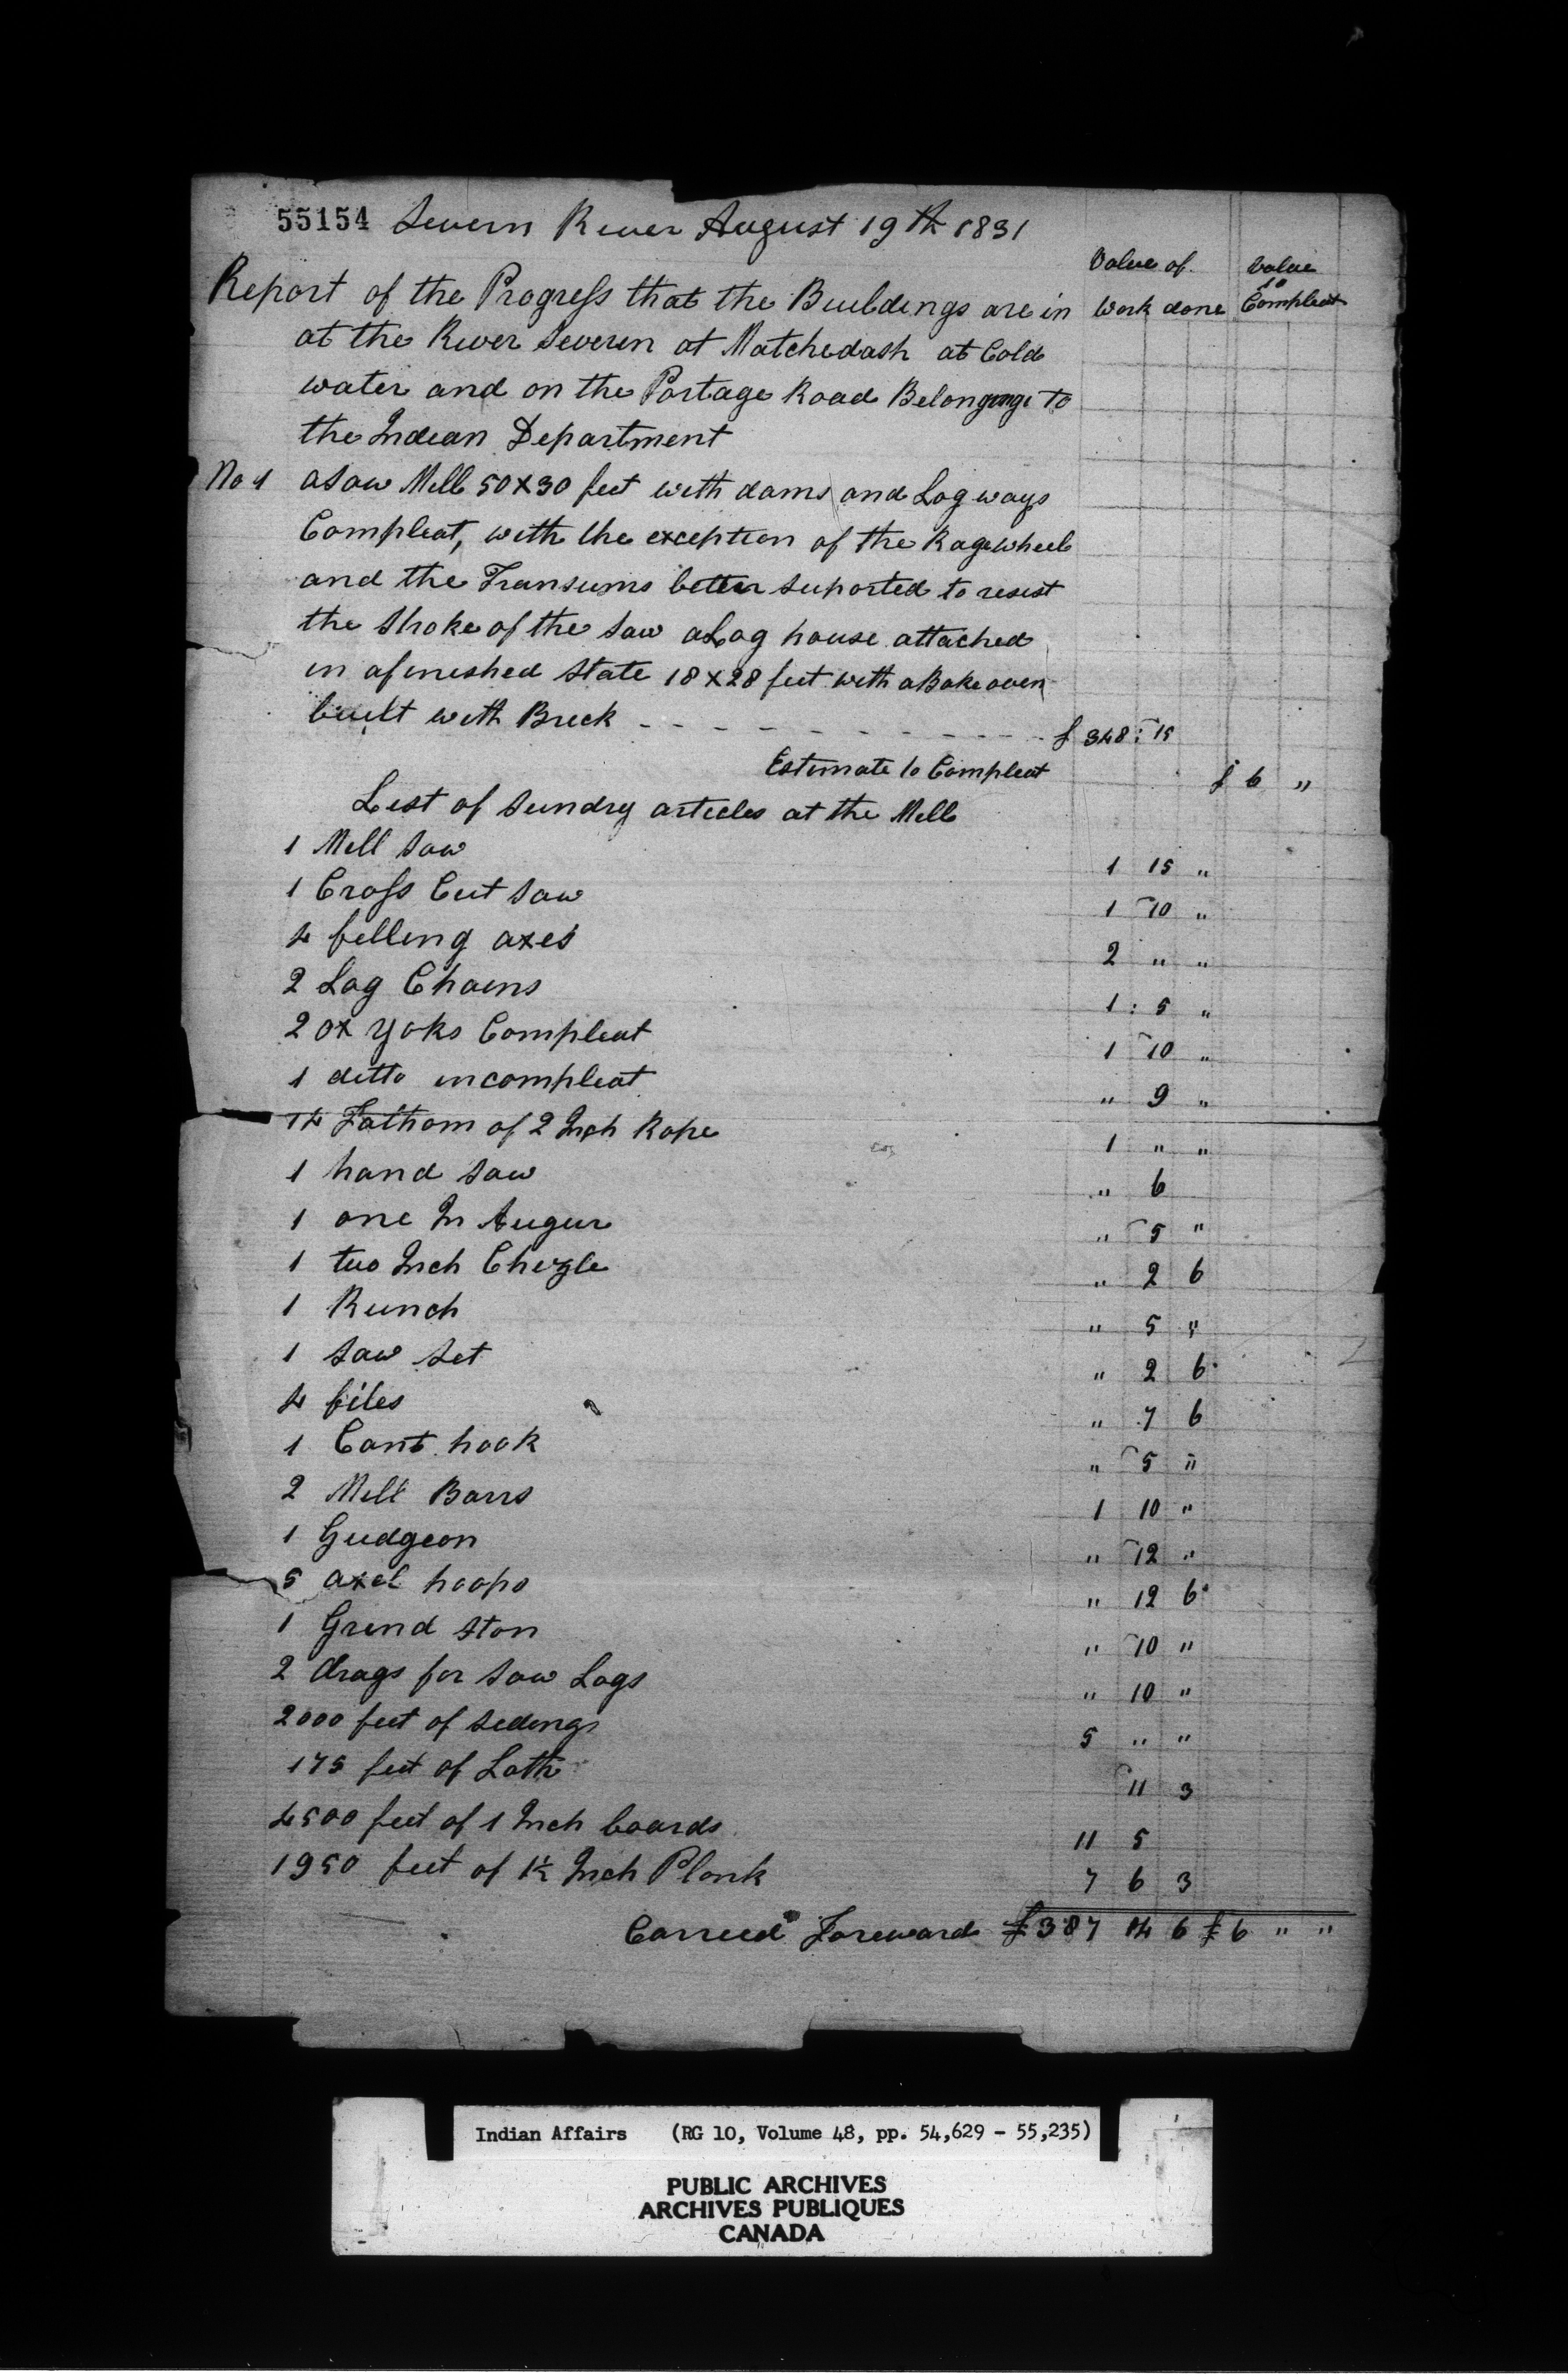 55154 Severn River August 19th 1831
Value of value
to
Report of the Progress that the Buildings are in Work done Compleat
at the River Severn at Matchedash at Cold
water and on the Portage Road Belonging to
the Indian Department
No 1 a Saw Mill 50 x 30 feet with dams and Log ways
Compleat, with the exception of the Ragewheel
and the Transums better suported to resist
the Stroke of the Saw a Log house attached
in a finished state 18 x 28 feet with a Bake oven
built with Brick - - - - - - - - - - £ 348 : 15
Estimate to Compleat £ 6 "
List of Sundry articles at the Mill
1 Mill Saw 1 15 "
1 Cross Cut Saw 1 10 "
4 felling axes 2 " "
2 Log Chains 1 : 5 "
2 ox Yoks Compleat 1 10 "
1 ditto incompleat " 9 "
14 Fathom of 2 Inch Rope 1 " "
1 hand Saw " 6
1 one In Augur " 5 "
1 two Inch Chizle " 2 6
1 Runch " 5 "
1 Saw Set " 2 6
4 files " 7 6
1 Cant hook " 5 "
2 Mill Barrs 1 10 "
1 Gudgeon " 12 "
5 axel hoops " 12 6
1 Grind Ston " 10 "
2 drags for Saw Logs " 10 "
2000 feet of Sidings 5 " "
175 feet of Lath 11 3
4500 feet of 1 Inch boards 11 5
1950 feet of 1½ Inch Plank 7 6 3
Carried Foreward £387 14 6 £6 " "
Indian Affairs (RG 10, Volume 48, pp. 54,629 - 55,235)
PUBLIC ARCHIVES
ARCHIVES PUBLIQUES
CANADA